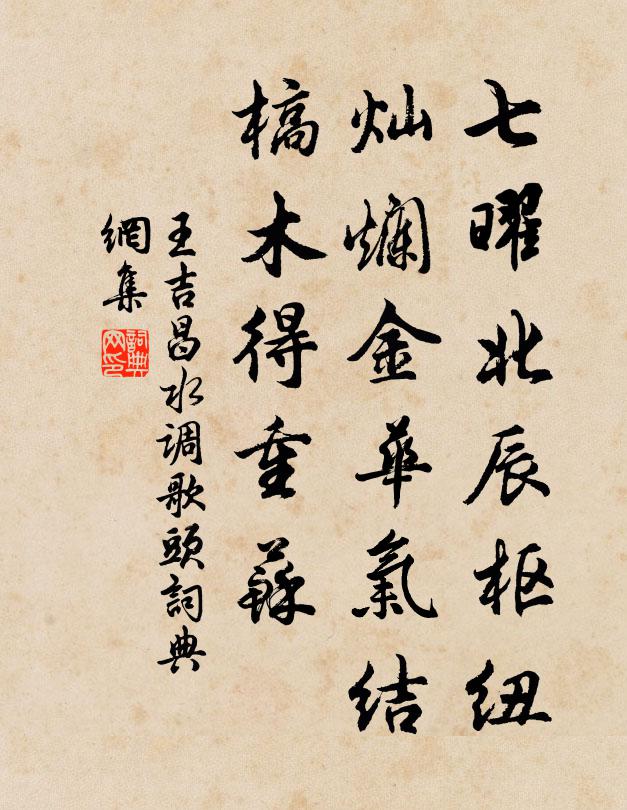 七曜北辰枢纽
灿爛金華氣結
槁木得重蘇
王吉昌水调歌頭詞典
網集
詞典
网印